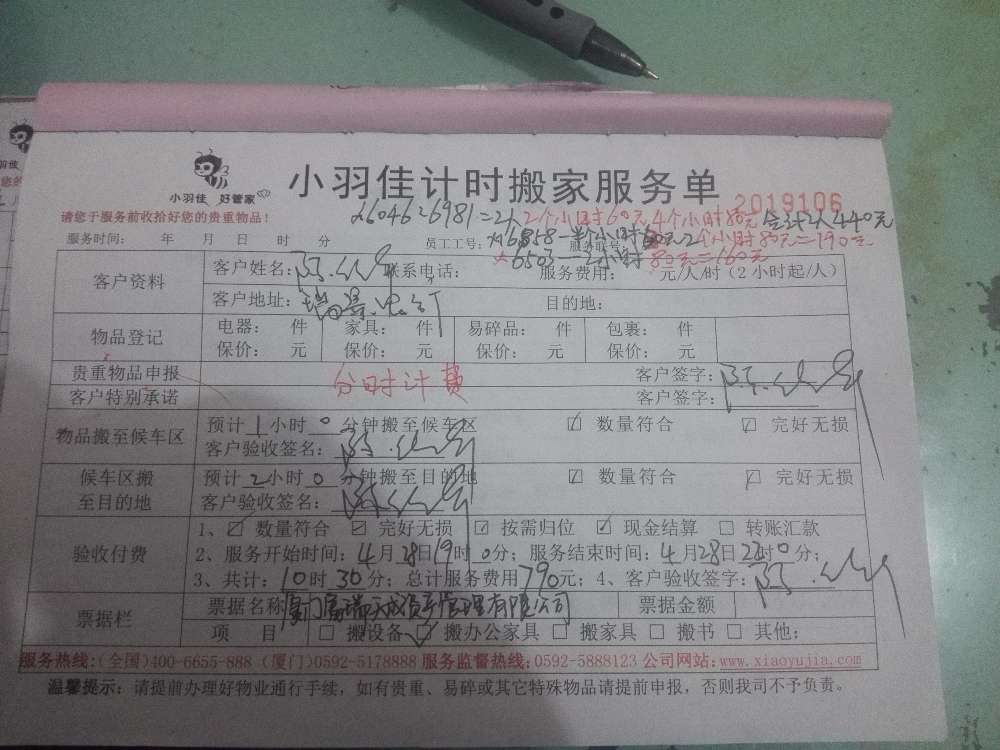 小羽佳 好管家
小羽佳计时搬家服务单
2019106
请您于服务前收拾好您的贵重物品!
✗6046 26981=2人 2个小时60元4个小时80元 合计2人440元
服务时间: 年 月 日 时 分 员工工号: ✗6858一半个小时 2个小时80元=190元
✗6503一2小时80元=160元
客户资料 客户姓名: 联系电话: 服务费用: 元/人/时(2小时起/人)
客户地址: 瑞景 目的地:
物品登记 电器: 件 家具: 件 易碎品: 件 包裹: 件
保价: 元 保价: 元 保价: 元 保价: 元
贵重物品申报 分时计费 客户签字:
客户特别承诺 客户签字:
物品搬至候车区 预计1小时0分钟搬至候车区 ☑ 数量符合 ☑ 完好无损
客户验收签名:
候车区搬至目的地 预计2小时0分钟搬至目的地 ☑ 数量符合 ☑ 完好无损
客户验收签名:
验收付费 1、☑ 数量符合 ☑ 完好无损 ☑ 按需归位 ☑ 现金结算 □ 转账汇款
2、服务开始时间:4月28日19时0分; 服务结束时间:4月28日22时0分;
3、共计:10时30分; 总计服务费用790元; 4、客户验收签字:
票据栏 票据名称 厦门富瑞天成资产管理有限公司 票据金额
项 目 □ 搬设备 ☑ 搬办公家具 □ 搬家具 □ 搬书 □ 其他:
服务热线:(全国)400-6655-888 (厦门)0592-5178888 服务监督热线:0592-5888123 公司网站:www.xiaoyujia.com
温馨提示: 请提前办理好物业通行手续, 如有贵重、易碎或其它特殊物品请提前申报, 否则我司不予负责。